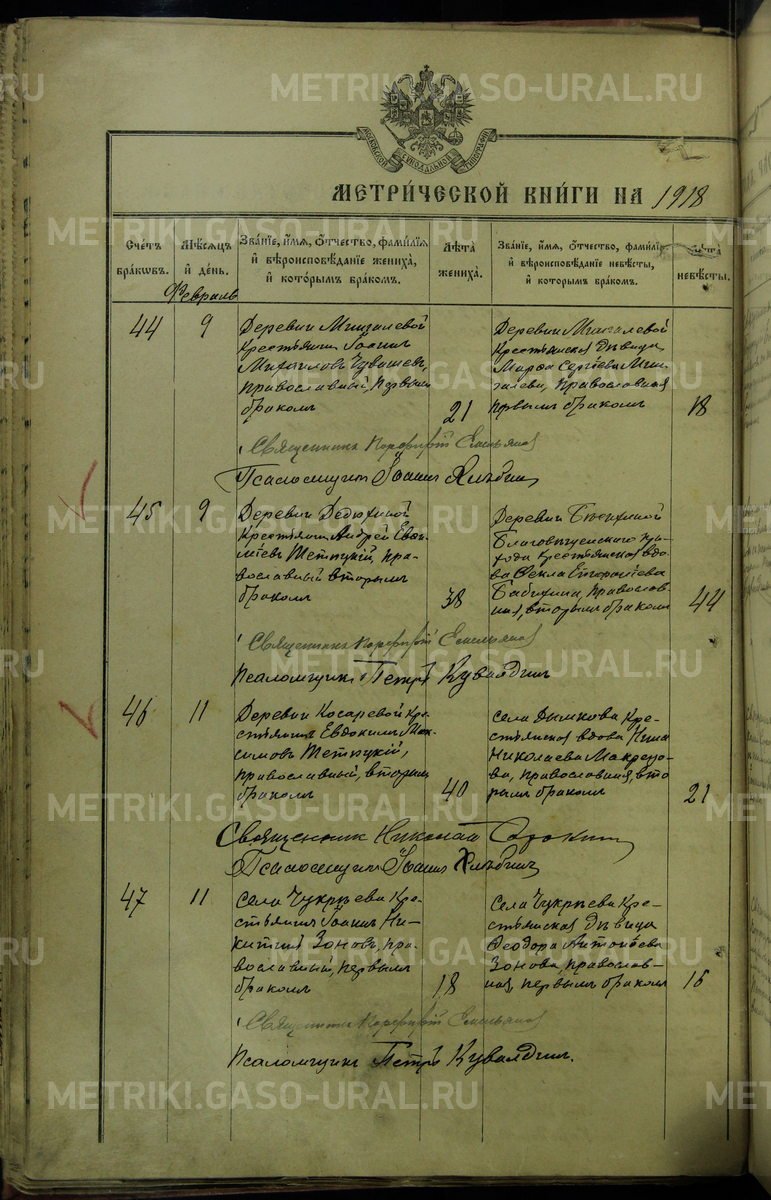 METRIKI.GASO-URAL.RU
МОСКОВСКОЙ СѴНОДАЛЬНОЙ ТИПОГРАФІИ
МЕТРИ́ЧЕСКОЙ КНИ́ГИ НА 1918
Сче́тъ бра́кѡвъ.
Мѣ́сѧцъ и́ де́нь.
Зва́нїе, и҆́мѧ, ѻ҆́тчество, фами́лїѧ
и҆ вѣроисповѣ́данїе жениха̀,
и҆ кото́рымъ бра́комъ.
Лѣ́та жениха̀.
Зва́нїе, и҆́мѧ, ѻ҆́тчество, фами́лїѧ
и҆ вѣроисповѣ́данїе невѣ́сты,
и҆ которымъ бра́комъ.
Лѣ́та невѣ́сты.
Февраль
44
9
Деревни Мишалевой
крестьянинъ Іоаннъ
Михаиловъ Чувашевъ,
православный, первымъ
бракомъ
21
Деревни Мишалевой
крестьянская дѣвица
Марѳа Сергіева
православная
первымъ бракомъ
18
Священникъ Порфирій Емельянов
Псаломщикъ Іоаннъ Хлѣбинъ
45
9
Деревни Дедюхиной
крестьянинъ Андрей Евѳи-
міевъ Тетюцкій, пра-
вославный вторымъ
бракомъ
38
Деревни
Благовѣщенскаго при-
хода крестьянская вдо-
ва Ѳекла
Бабихина, православ-
ная, вторымъ бракомъ
44
Священникъ Порфирій Емельянов
Псаломщикъ Петръ Кувалдинъ
46
11
Деревни Косаревой кре-
стьянинъ Евдокимъ Мак-
симовъ Тетюцкій,
православный, вторымъ
бракомъ
40
Села Дымкова кре-
стьянская вдова Нина
Николаева
православная, вто-
рымъ бракомъ
21
Священник Николай Сорокин
Псаломщикъ Іоаннъ Хлѣбинъ
47
11
Села Чукрѣева кре-
стьянинъ Іоаннъ Ни-
китинъ Зоновъ, пра-
вославный, первымъ
бракомъ
18
Села Чукрѣева кре-
стьянская дѣвица
Ѳеодора Антоніева
Зонова, православ-
ная, первымъ бракомъ
16
Священникъ Порфирій Емельянов
Псаломщикъ Петръ Кувалдинъ.